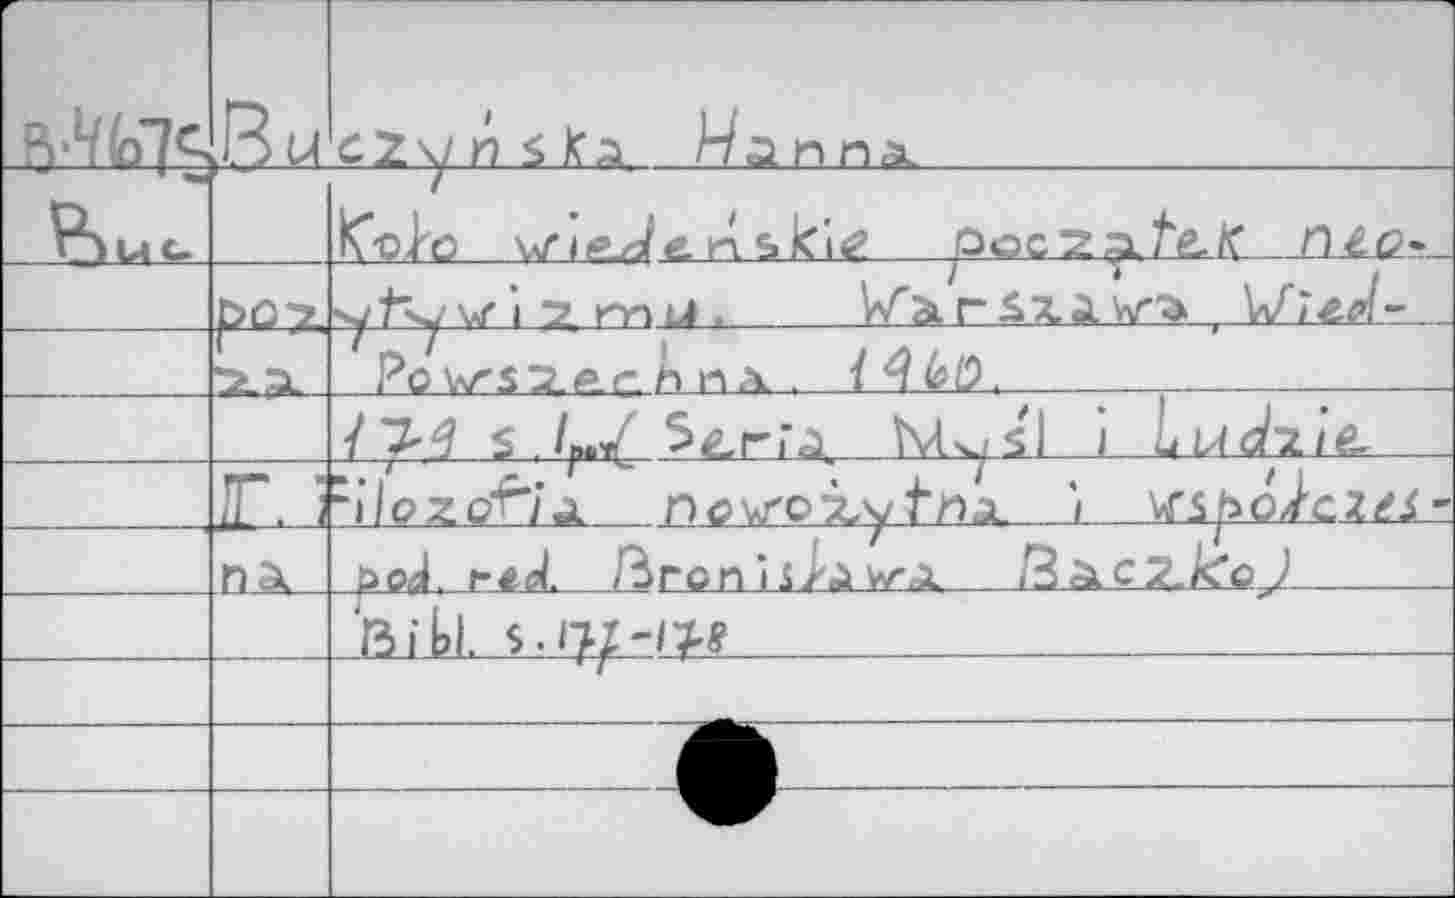 B.4675 Buczyńska Hanna
Buc Koło wiedeńskie początek neo-
pozytywizmu. Warszawa, Wied-
za Powszechna. 1960.
179 s. Seria Myśl i Ludzie
II. Filozofia nowożytna i współczes-
na pod. red. Bronisława Baczko)
Bibl. s. 177-178